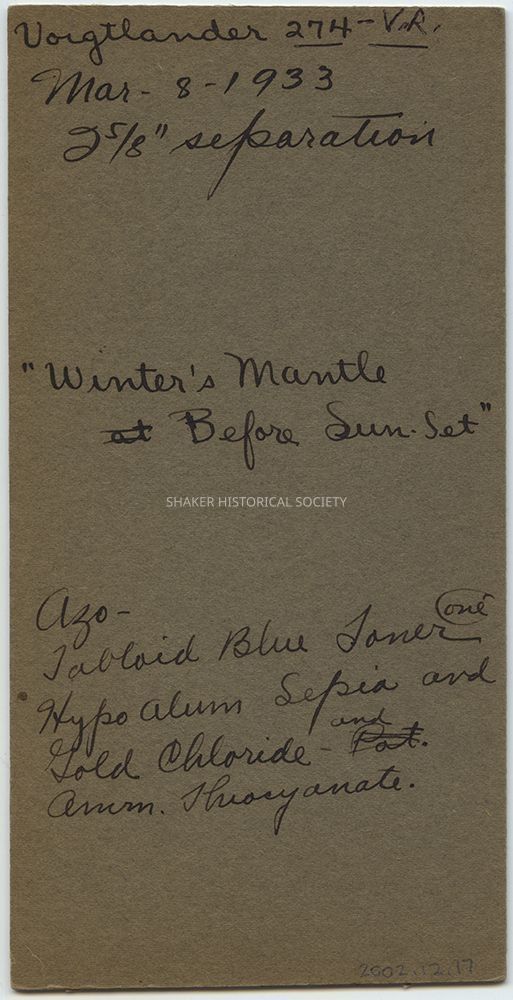 Voigtlander 274 - V.R.
Mar - 8 - 1933
2 5/8" separation
"Winter's Mantle
at Before Sun-Set"
SHAKER HISTORICAL SOCIETY
Azo -
one
Tabloid Blue Toner
Hypo Alum Sepia and
and
Gold Chloride - Pot.
Amm. Thiocyanate.
2002.12.17